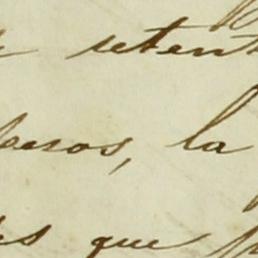 setent
pesos, la
que